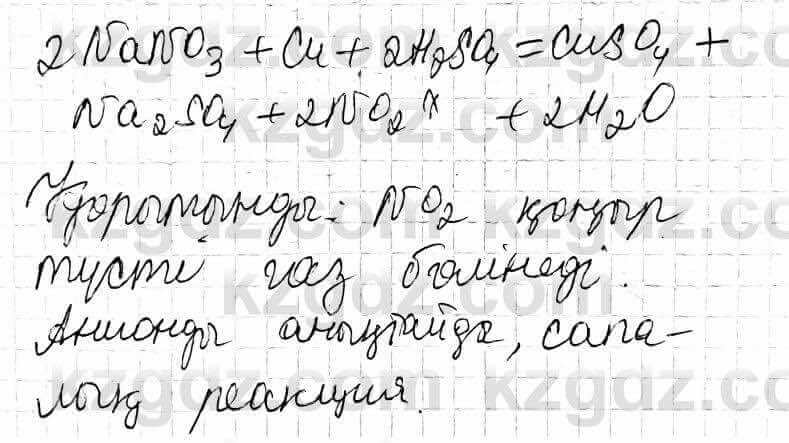 2NaNO₃ + Cu + 2H₂SO₄ = CuSO₄ +
Na₂SO₄ + 2NO₂↑ + 2H₂O
Қорытынды: NO₂ қоңыр
түсті газ бөлінеді.
Анионды анықтайды, сапа-
лық реакция.